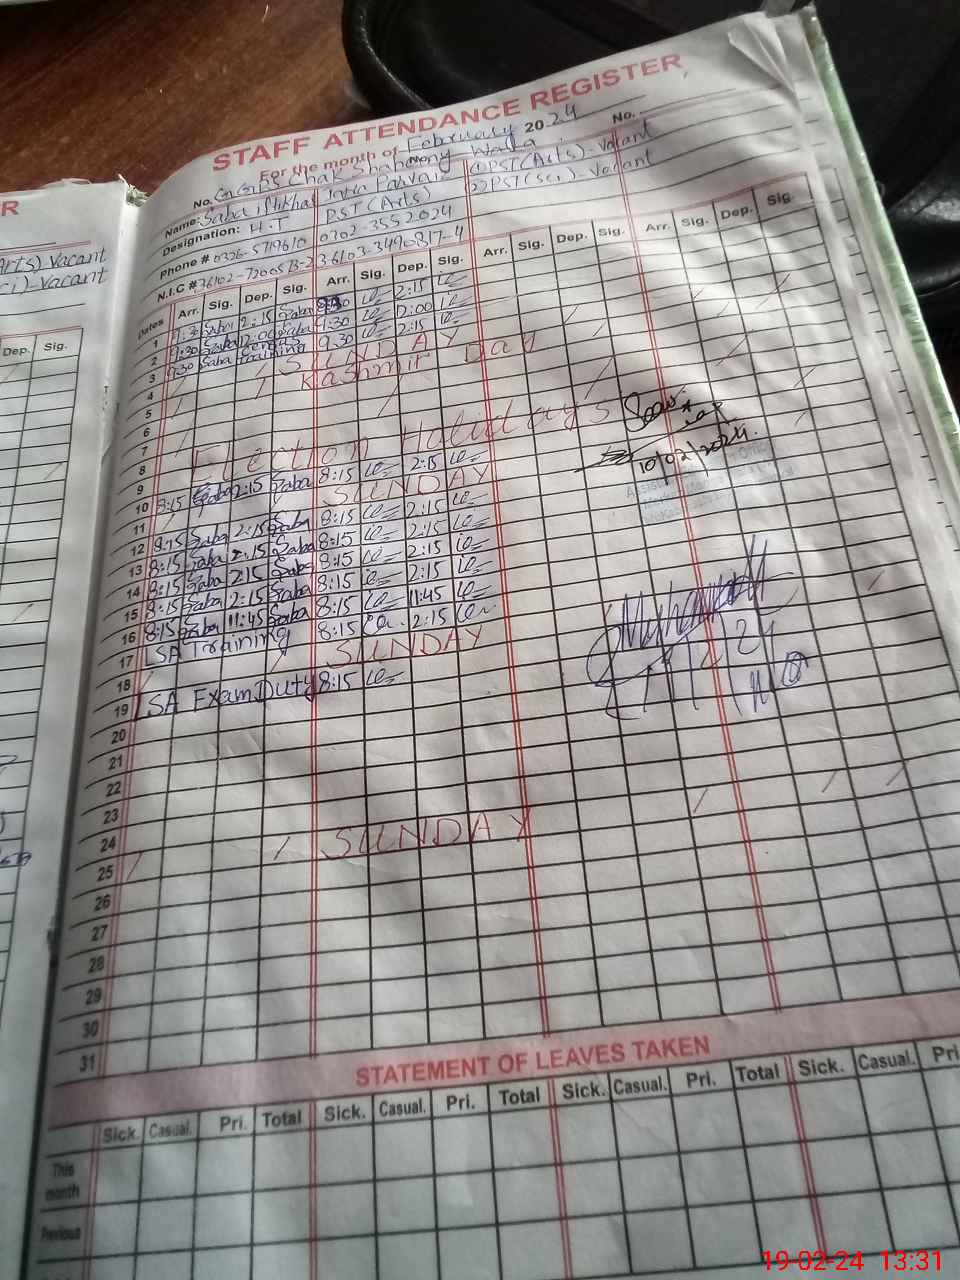 STAFF ATTENDANCE REGISTER
For the month of February 2024 No.
No. GGPS Chak Shahony Wala
Name: Saba iftikhar ① PST (Arts) - Vacant
Designation: H.T PST (Arts) ② PST (Sci) - Vacant
Phone # 0326-5719610 0302-3552024
N.I.C # 36103-3490817-4
Dates Arr. Sig. Dep. Sig. Arr. Sig. Dep. Sig. Arr. Sig. Dep. Sig. Arr. Sig. Dep. Sig.
1 Saba 2:15 Saba 2:15
2 9:30 Saba 12:00 Saba 9:30 12:00
3 9:30 Saba Training 9:30 2:15
4 SUNDAY
5 Kashmir Day
6
7
8 Election Holidays
9
10 8:15 Saba 2:15 Saba 8:15 2:15
11 SUNDAY
12 8:15 Saba 2:15 Saba 8:15 2:15
13 8:15 Saba 2:15 Saba 8:15 2:15
14 8:15 Saba 2:15 Saba 8:15 2:15
15 8:15 Saba 2:15 Saba 8:15 2:15
16 8:15 Saba 11:45 Saba 8:15 11:45
17 LSA Training 8:15 2:15
18 SUNDAY
19 LSA Exam Duty 8:15
20
21
22
23
24
25 SUNDAY
26
27
28
29
30
31
10/02/2024.
STATEMENT OF LEAVES TAKEN
Sick. Casual. Pri. Total Sick. Casual. Pri. Total Sick. Casual. Pri. Total Sick. Casual. Pri
This month
Previous
R
Arts) Vacant
ci)-Vacant
Dep. Sig.
19-02-24 13:31